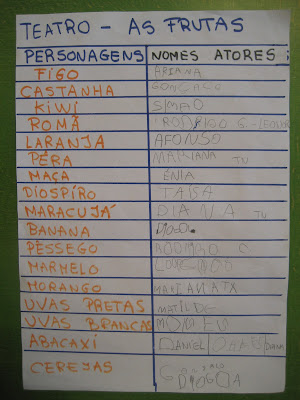 TEATRO - AS FRUTAS
PERSONAGENS NOMES ATORES:
FIGO ARIANA
CASTANHA GONÇALO
KIWI SIMÃO
ROMÃ RODRIGO G-LEONOR
LARANJA AFONSO
PÊRA MARIANA TU
MAÇA ÉNIA
DIOSPÍRO
MARACUJÁ DIANA TU
BANANA DIOGO
PÊSSEGO RODRIGO C
MARMELO
MORANGO
UVAS PRETAS MATILDE
UVAS BRANCAS
ABACAXI DANIEL
CEREJAS GONÇALO
DIOGO A